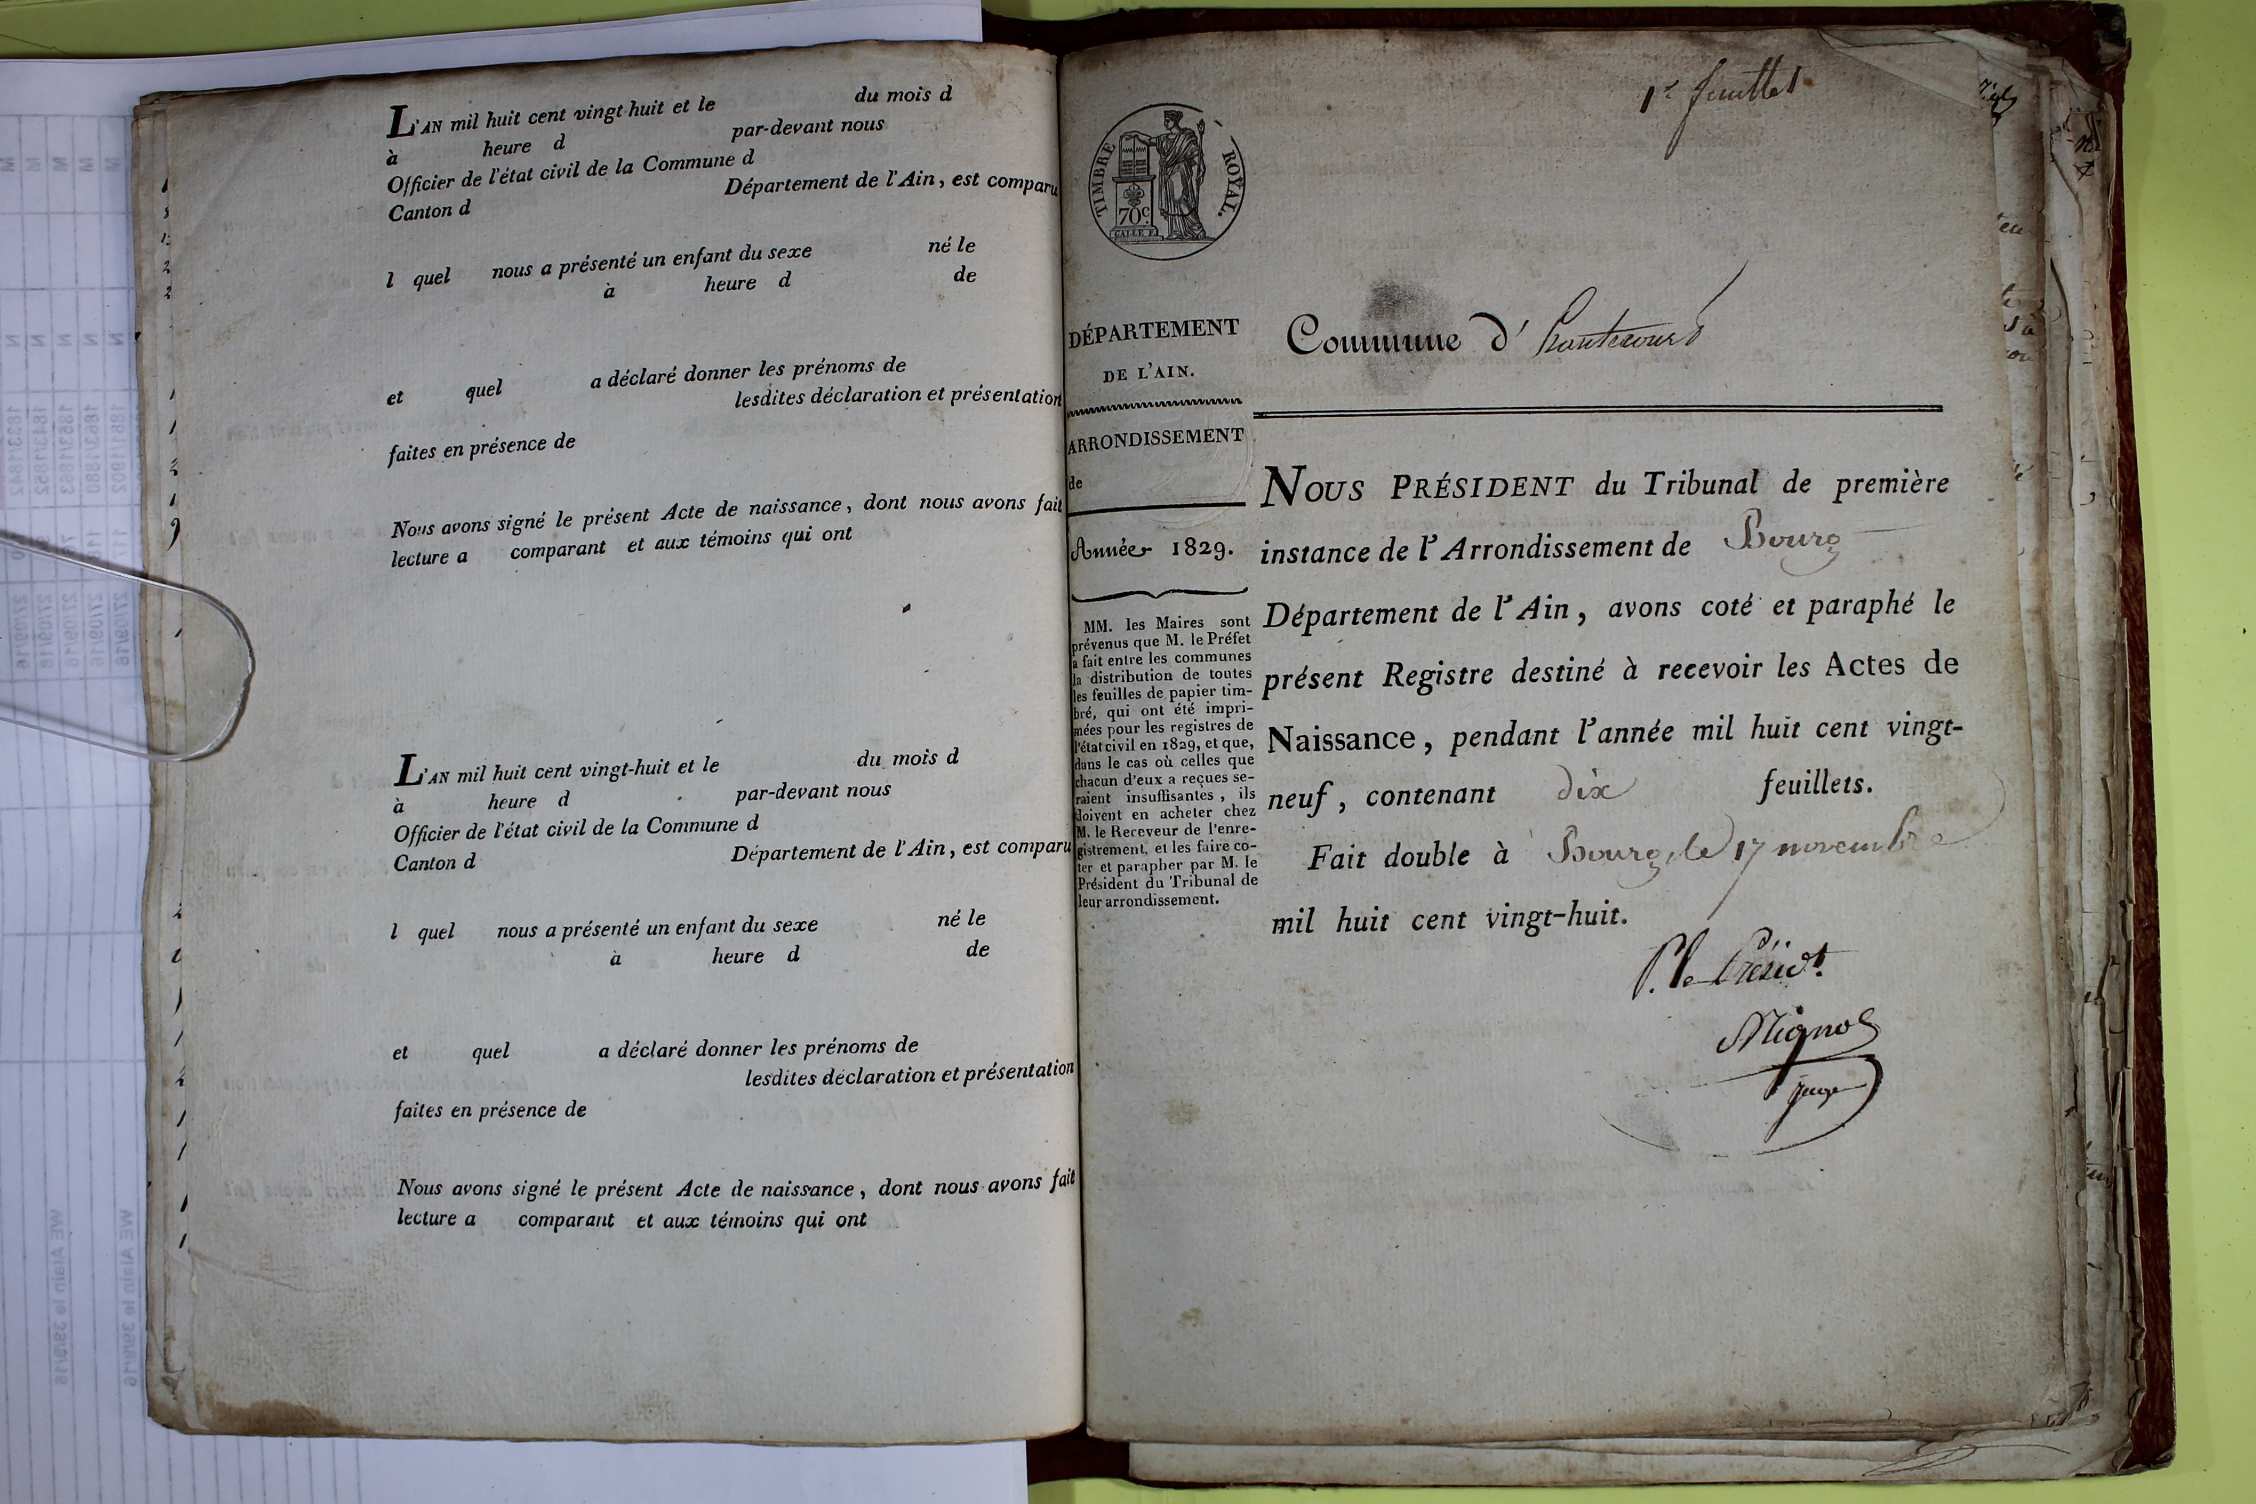 L'AN mil huit cent vingt-huit et le du mois d
à heure d par-devant nous
Officier de l'état civil de la Commune d
Canton d Département de l'Ain, est comparu
l quel nous a présenté un enfant du sexe né le
à heure d de
et quel a déclaré donner les prénoms de
lesdites déclaration et présentation
faites en présence de
Nous avons signé le présent Acte de naissance, dont nous avons fait
lecture a comparant et aux témoins qui ont
L'AN mil huit cent vingt-huit et le du mois d
à heure d par-devant nous
Officier de l'état civil de la Commune d
Canton d Département de l'Ain, est comparu
l quel nous a présenté un enfant du sexe né le
à heure d de
et quel a déclaré donner les prénoms de
lesdites déclaration et présentation
faites en présence de
Nous avons signé le présent Acte de naissance, dont nous avons fait
lecture a comparant et aux témoins qui ont
1r feuillet
TIMBRE ROYAL.
70c.
DÉPARTEMENT
DE L'AIN.
ARRONDISSEMENT
de
Année 1829.
MM. les Maires sont
prévenus que M. le Préfet
a fait entre les communes
la distribution de toutes
les feuilles de papier tim-
bré, qui ont été impri-
mées pour les registres de
l'état civil en 1829, et que,
dans le cas où celles que
chacun d'eux a reçues se-
raient insuffisantes, ils
doivent en acheter chez
M. le Receveur de l'enre-
gistrement, et les faire co-
ter et parapher par M. le
Président du Tribunal de
leur arrondissement.
Commune d' hautecourt
NOUS PRÉSIDENT du Tribunal de première
instance de l'Arrondissement de Bourg
Département de l'Ain, avons coté et paraphé le
présent Registre destiné à recevoir les Actes de
Naissance, pendant l'année mil huit cent vingt-
neuf, contenant dix feuillets.
Fait double à Bourg, le 17 novembre
mil huit cent vingt-huit.
P. le Présidt.
juge